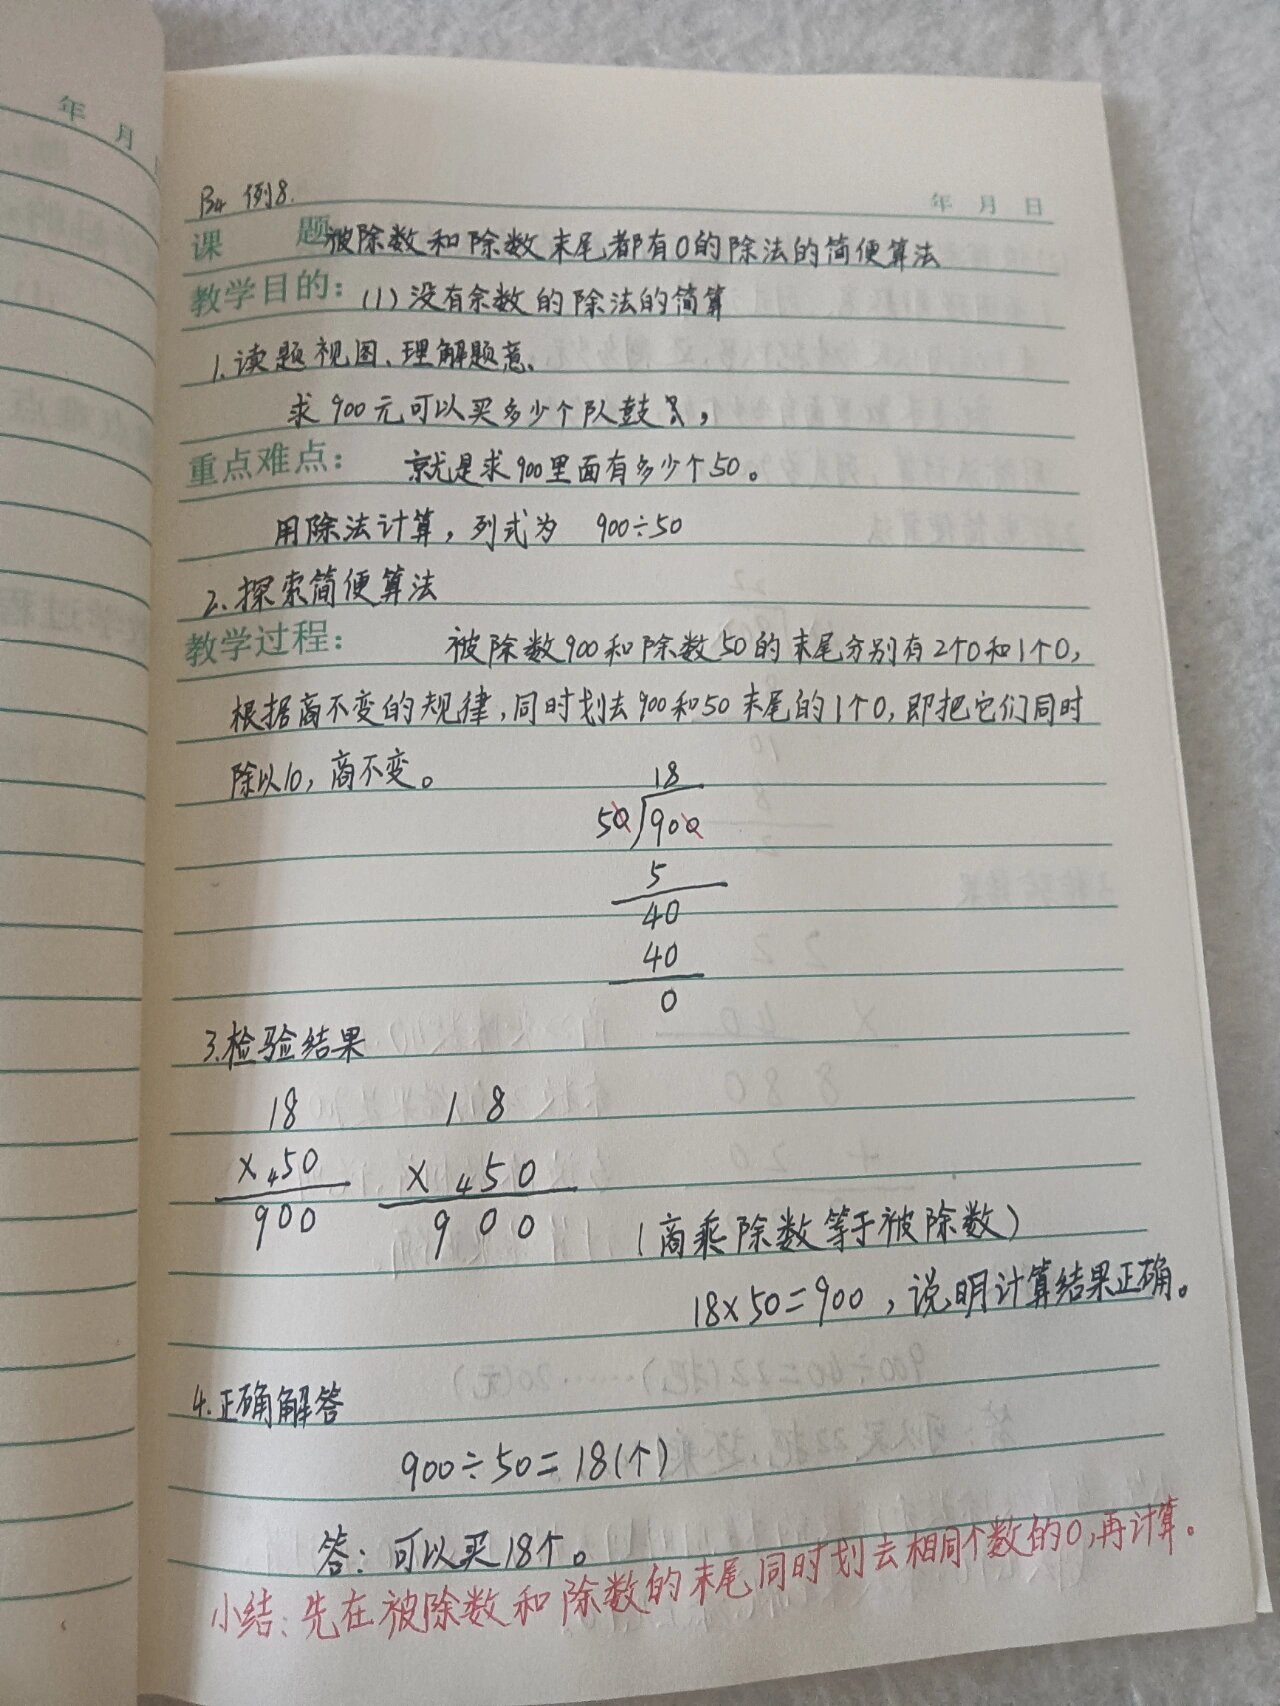 年 月
P24 例8.
年 月 日
课 题 被除数和除数末尾都有0的除法的简便算法
教学目的: (1)没有余数的除法的简算
1.读题视图、理解题意、
求900元可以买多少个队鼓,
重点难点: 就是求900里面有多少个50。
用除法计算,列式为 900÷50
2.探索简便算法
教学过程: 被除数900和除数50的末尾分别有2个0和1个0,
根据商不变的规律,同时划去900和50末尾的1个0,即把它们同时
除以10,商不变。
18
50 900
5
40
40
0
3.检验结果
18 18
×450 ×450
900 900
(商乘除数等于被除数)
18×50=900,说明计算结果正确。
4.正确解答
900÷50=18(个)
答:可以买18个。
小结:先在被除数和除数的末尾同时划去相同个数的0,再计算。